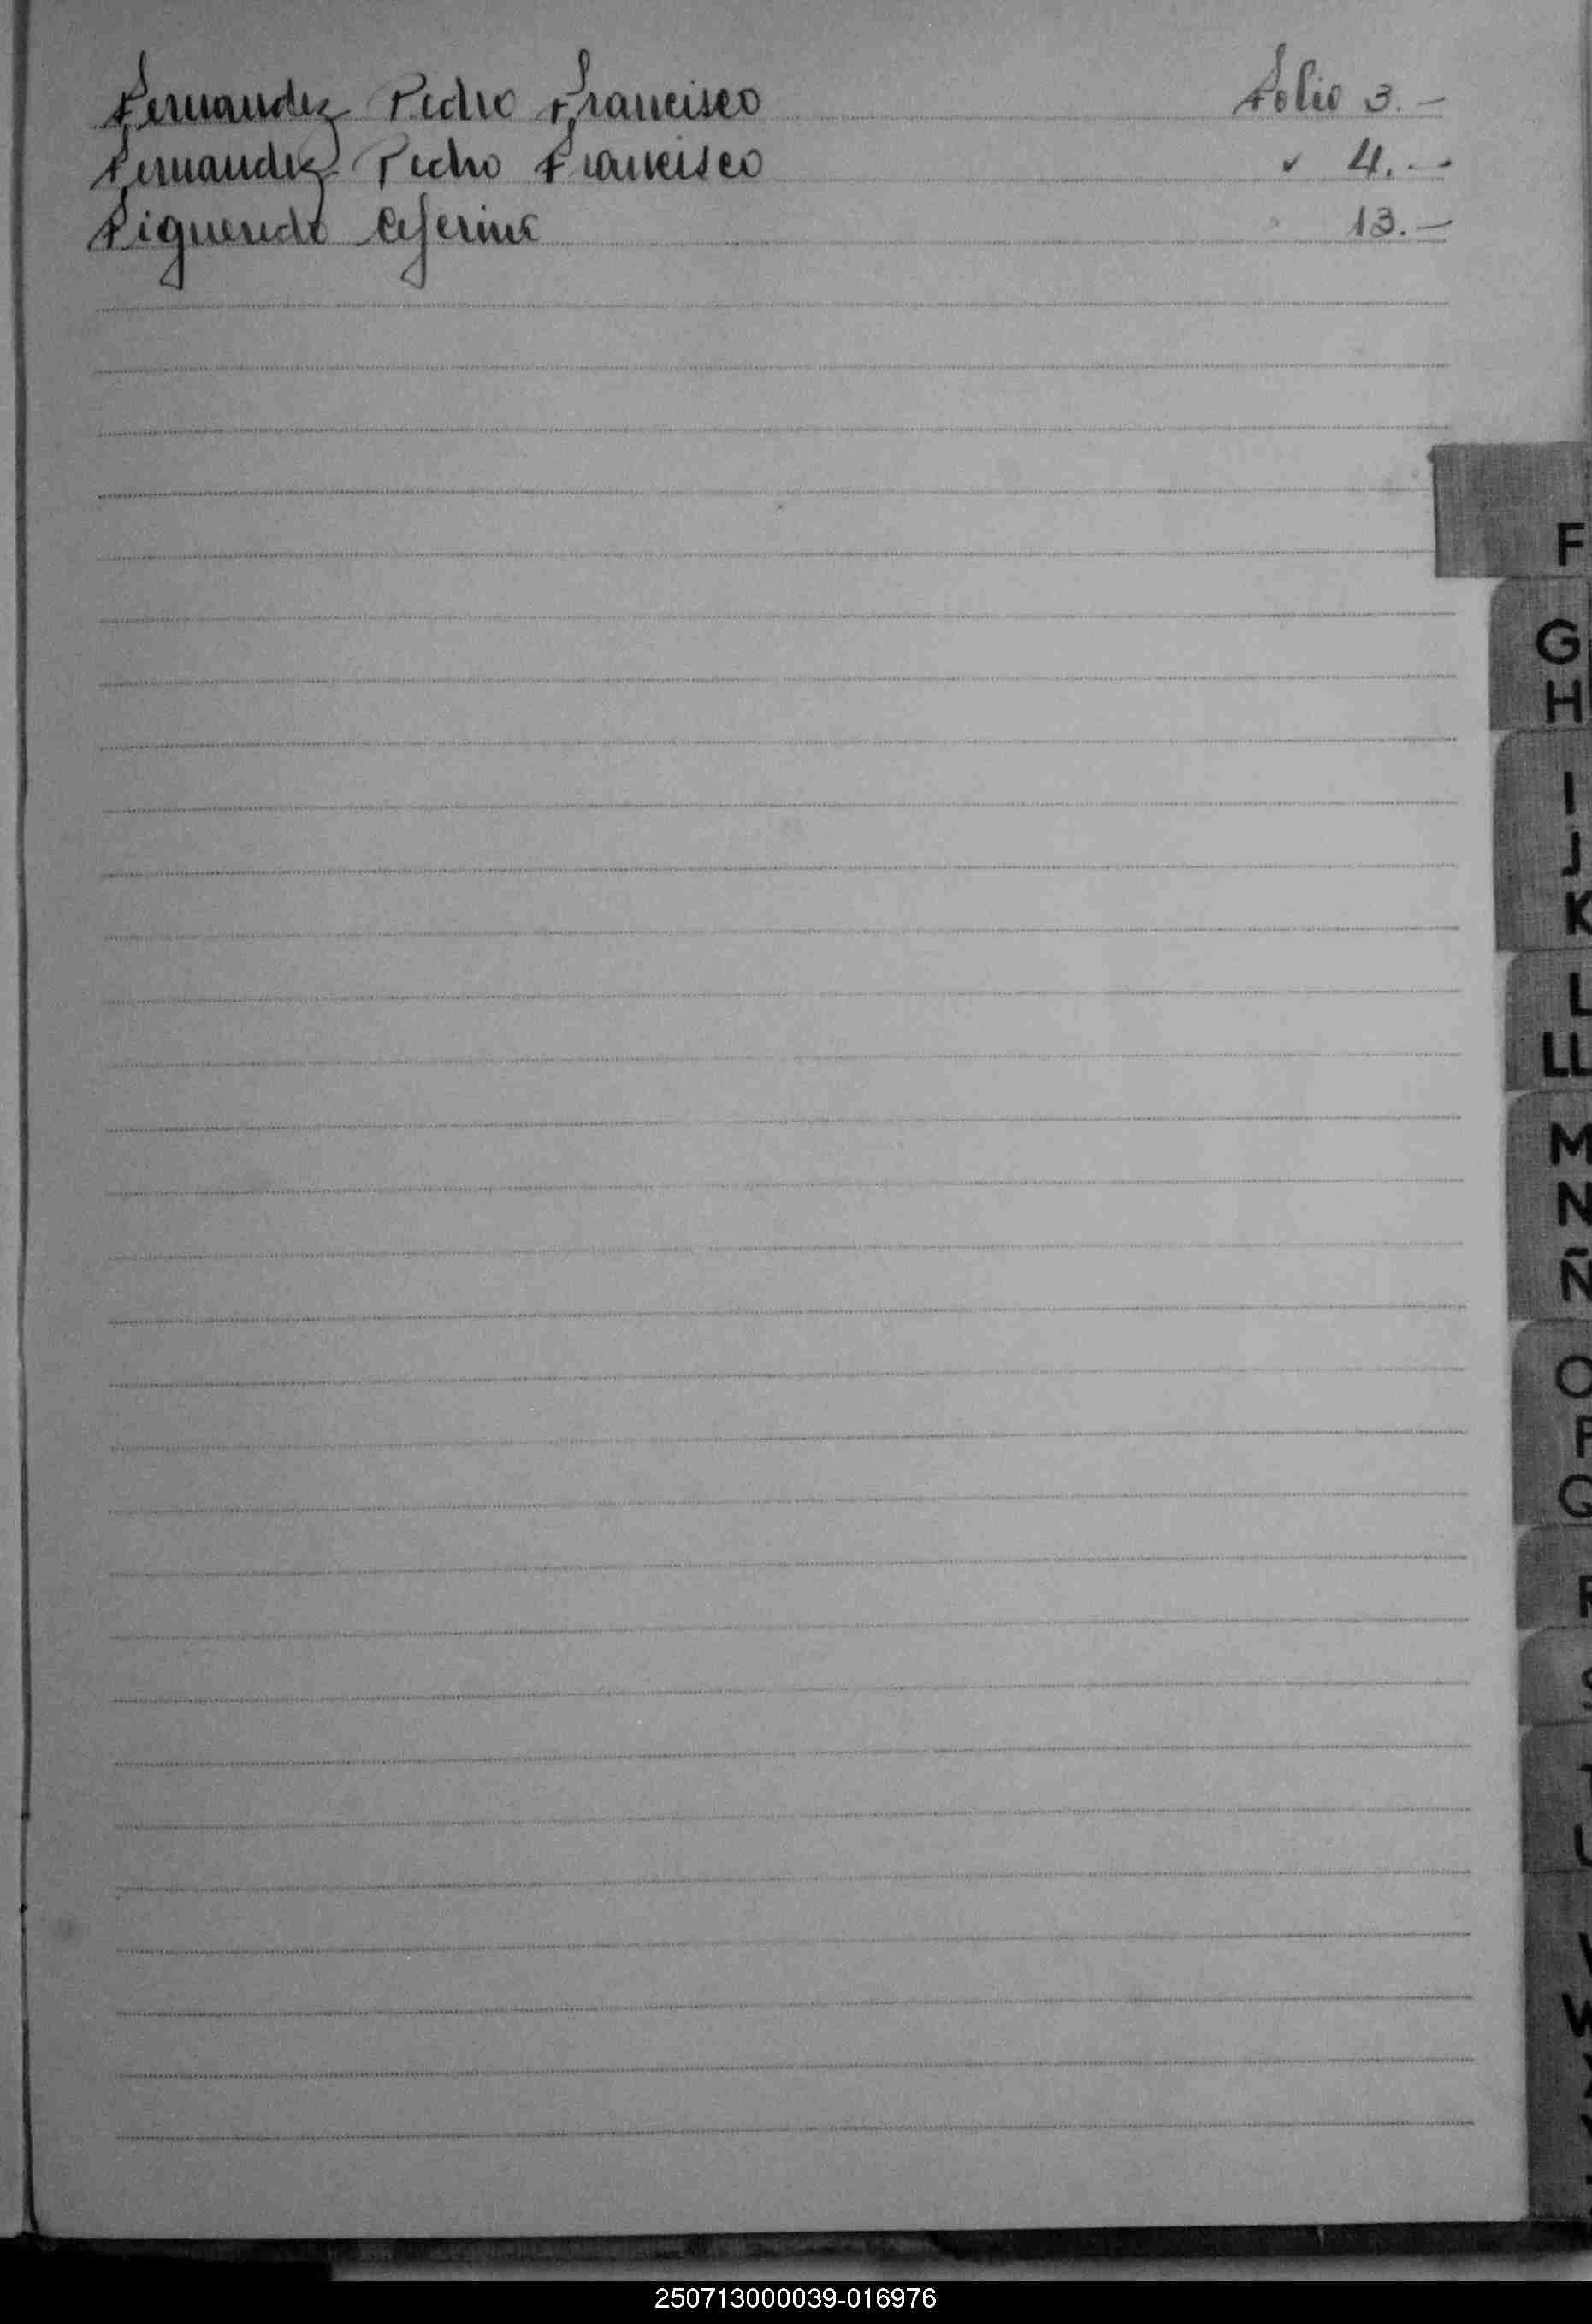 Fernandez Pedro Francisco Folio 3.—
Fernandez Pedro Francisco " 4.—
Figueredo Ceferino 13.—
F
G
H
I
J
K
L
LL
M
N
Ñ
O
P
Q
R
S
T
U
V
W
X
250713000039-016976